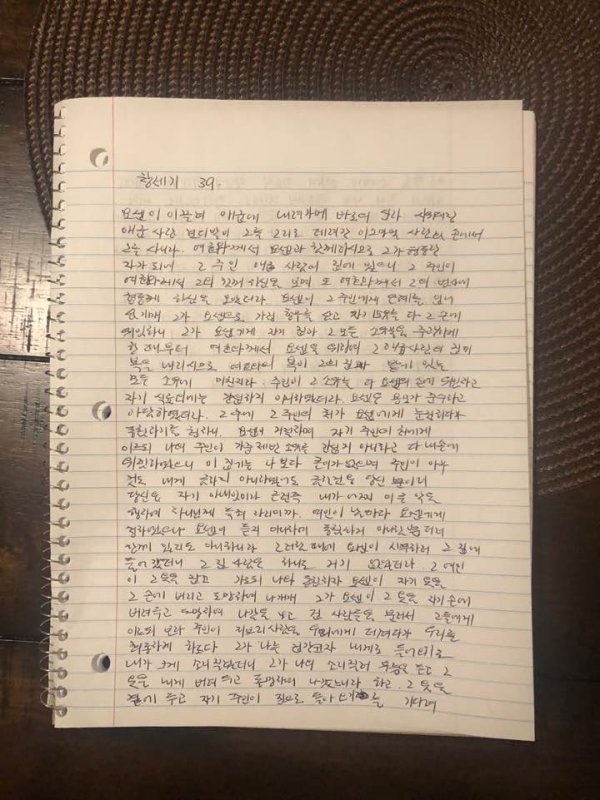 창세기 39.
요셉이 이끌려 애굽에 내려가매 바로의 신하 시위대장
애굽 사람 보디발이 그를 그리로 데려간 이스마엘 사람의 손에서
그를 사니라. 여호와께서 요셉과 함께하시므로 그가 형통한
자가 되어 그 주인 애굽 사람의 집에 있으니 그 주인이
여호와께서 그와 함께 하심을 보며 또 여호와께서 그의 범사에
형통케 하심을 보았더라 요셉이 그 주인에게 은혜를 입어
섬기매 그가 요셉으로 가정 총무를 삼고 자기 소유를 다 그 손에
위임하니 그가 요셉에게 자기 집과 그 모든 소유물을 주관하게
한 때부터 여호와께서 요셉을 위하여 그 애굽사람의 집에
복을 내리시므로 여호와의 복이 그의 집과 밭에 있는
모든 소유에 미친지라. 주인이 그 소유를 다 요셉의 손에 위임하고
자기 식료 외에는 간섭하지 아니하였더라. 요셉은 용모가 준수하고
아담하였더라. 그 후에 그 주인의 처가 요셉에게 눈짓하다가
동침하기를 청하니. 요셉이 거절하며 자기 주인의 처에게
이르되 나의 주인이 가중제반 소유를 간섭지 아니하고 다 내 손에
위임하였으니 이 집에는 나보다 큰 이가 없으며 주인이 아무
것도 내게 금하지 아니하였어도 금한 것은 당신 뿐이니
당신은 자기 아내임이라 그런즉 내가 어찌 이 큰 악을
행하여 하나님께 득죄 하리이까. 여인이 날마다 요셉에게
청하였으나 요셉이 듣지 아니하여 동침하지 아니할 뿐더러
함께 있지도 아니하니라 그러할 때에 요셉이 시무하러 그 집에
들어갔더니 그 집 사람은 하나도 거기 없었더라. 그 여인
이 그 옷을 잡고 가로되 나와 동침하자 요셉이 자기 옷을
그 손에 버리고 도망하여 나가매 그가 요셉이 그 옷을 자기 손에
버려두고 도망하여 나감을 보고 집 사람들을 불러서 그들에게
이르되 보라 주인이 히브리 사람을 우리에게 데려다가 우리를
희롱하게 하도다 그가 나를 겁간코자 내게로 들어오기로
내가 크게 소리질렀더니 그가 나의 소리질러 부름을 듣고 그
옷을 내게 버려 두고 도망하여 나갔느니라 하고. 그 옷을
곁에 두고 자기 주인이 집으로 돌아오기를 기다려